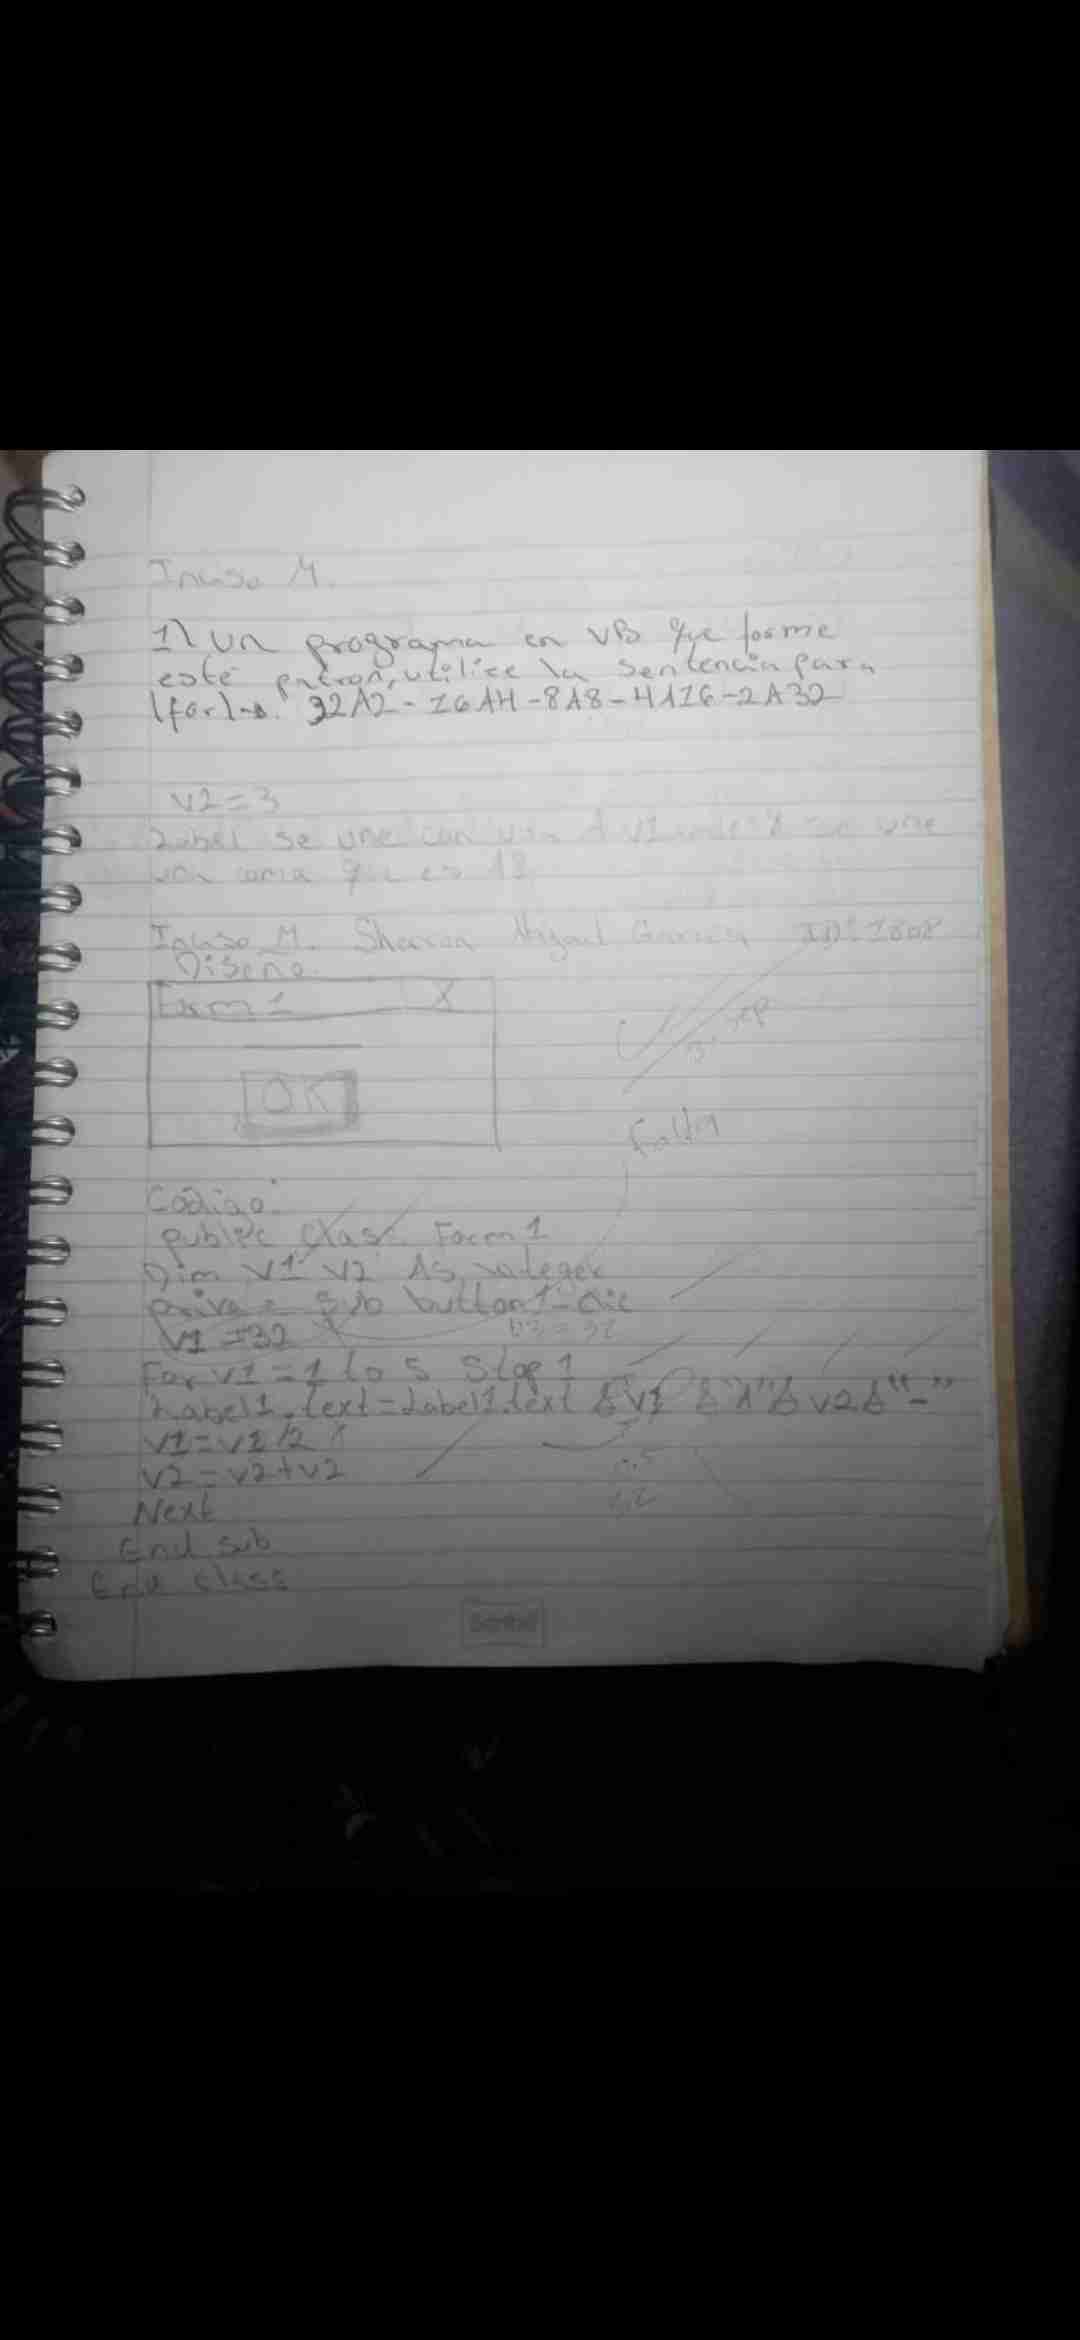 Inciso M.
1) Un programa en VB que forme
este patron, utilice la sentencia para
(for)-> 32A2-16A4-8A8-4A16-2A32
v2=3
Label se une con una A v1 se une
una coma que es 18
Inciso M. Sharon García ID:1808
Diseno.
Form 1 X
sep
OK
Falta
Código:
public Class Form 1
Dim V1 V2 As integer
Sub button1-Clic
V1 =32
For V1=1 to 5 Step 1
Label1.text=Label1.text & V1 & "A" & V2 & "-"
V1=V1/2
V2=V2+V2
Next
End sub
End class
Scribe